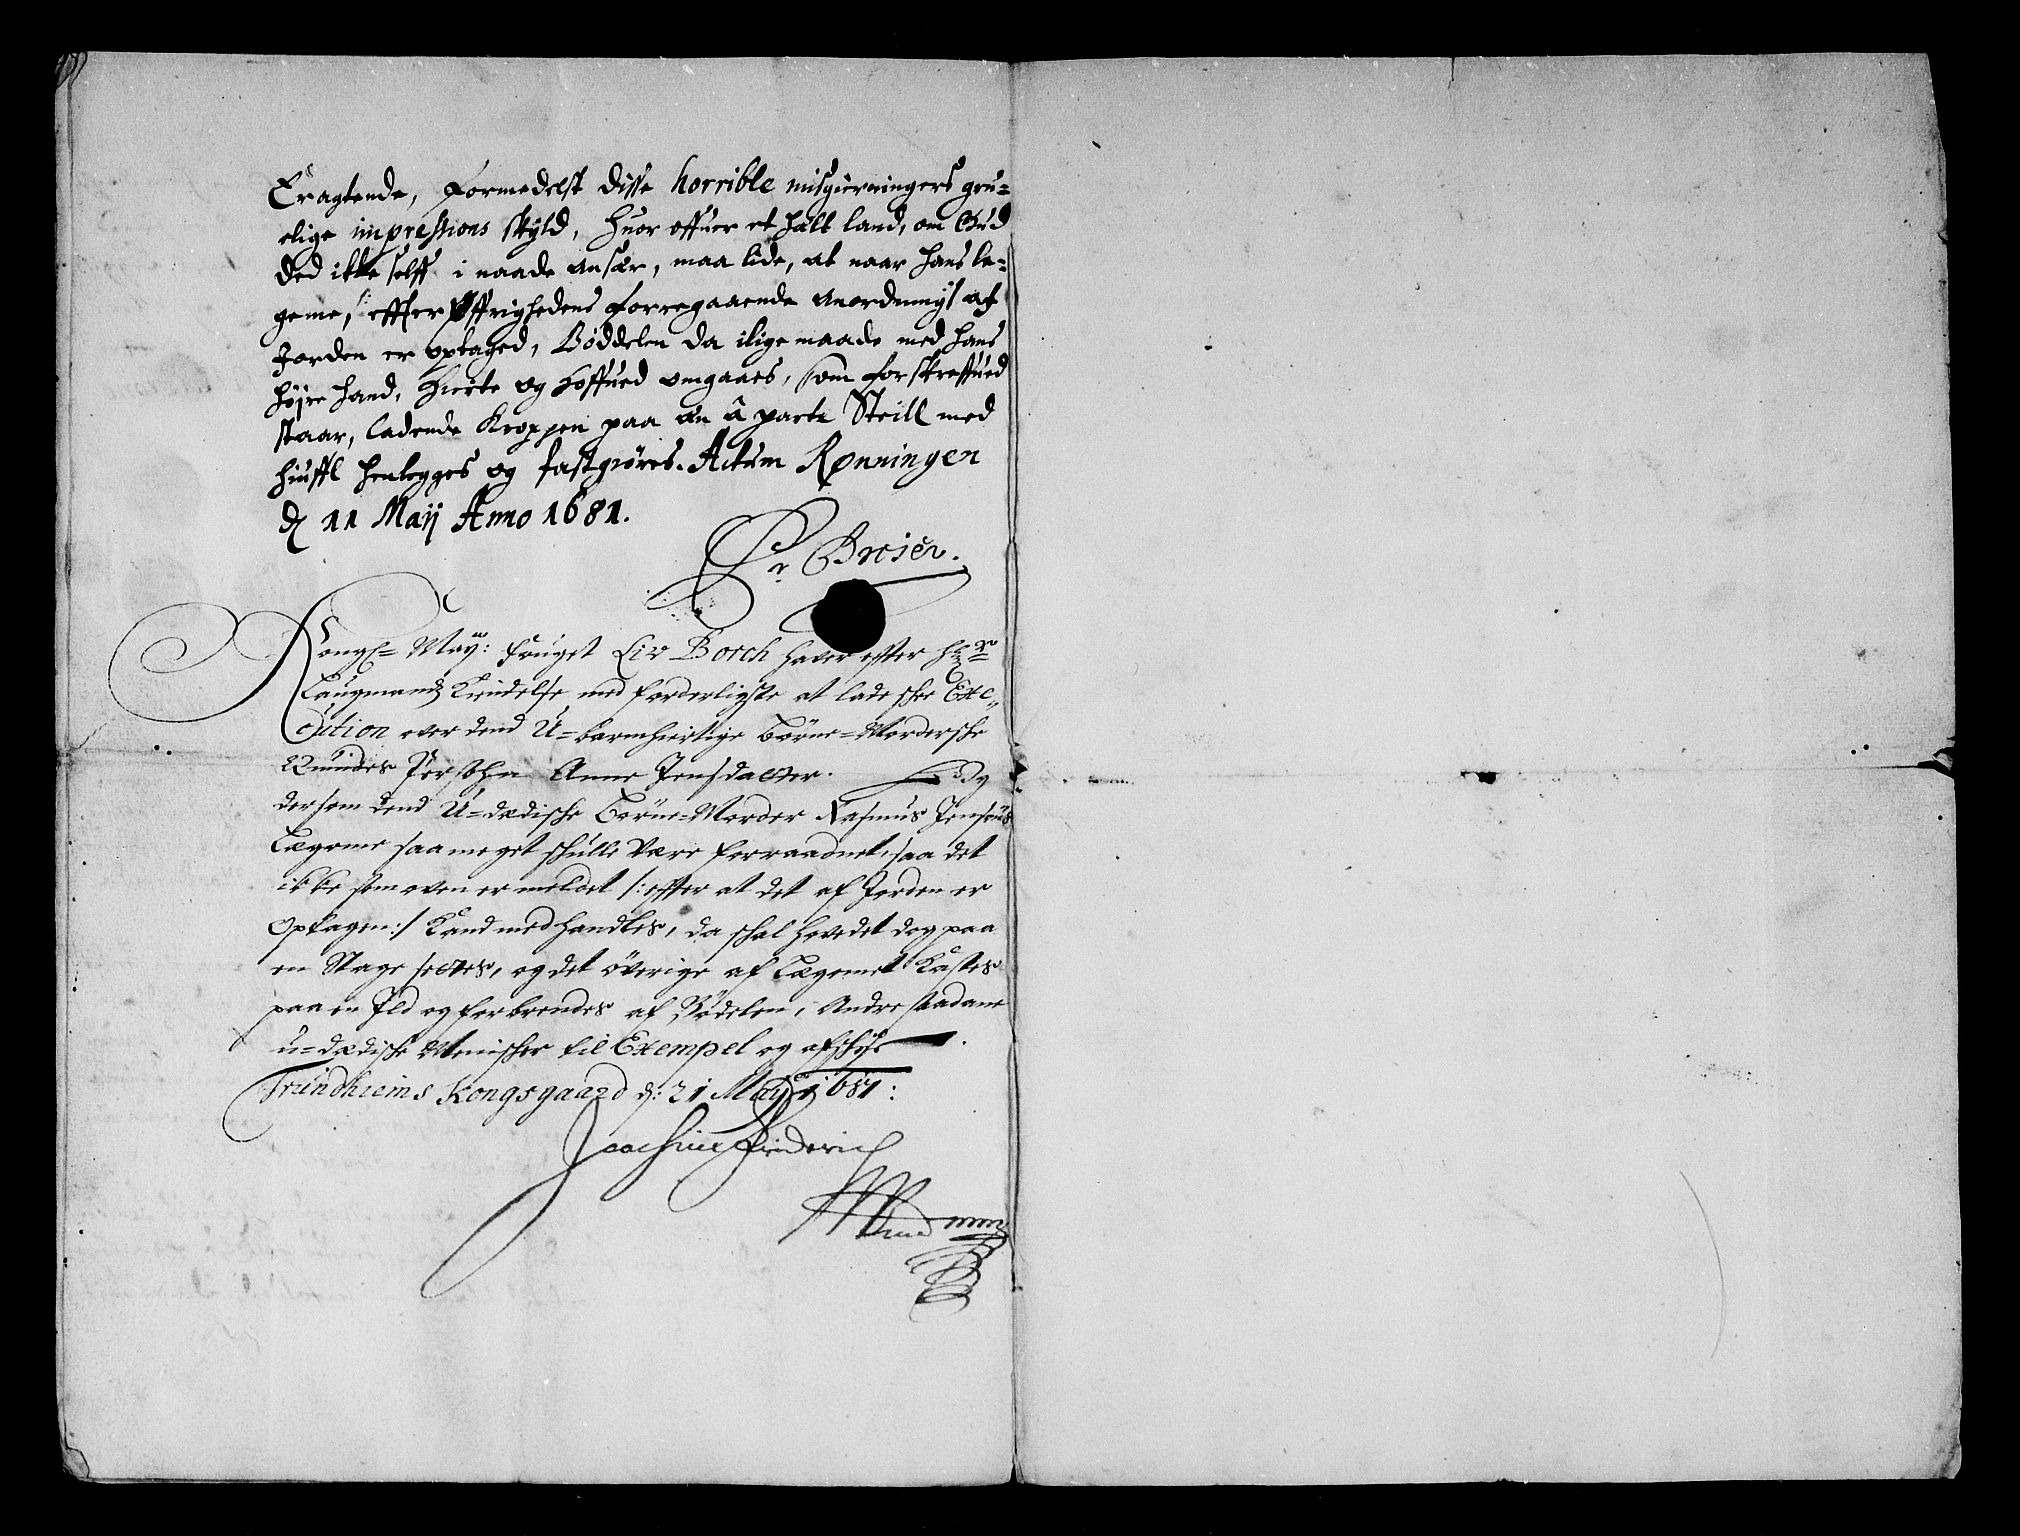 Eragtende, formedelst disse horrible misgierningers gru-
elige impressions skyld, huor offuer et halt land, om Gud
ded ikke selff i naade ansær, maa lide, at naar hans le-
geme, effter Øffrighedens forregaaende anordning af
Jorden er optaged, Bøddelen da ilige maade med hans
højre hand, Hierte og Hoffued omgaaes, som forskreffued
staar, ladende Kroppen paa en â parte Steill med
hiuffl henlegges og fastgiøres. Actum Rønningen
d 11 Maij Anno 1681.
Pr Breier.
Kongl= May: fouget Liv Borch haver efter hr
Laugmands Kiendelse med forderligste at lade skee Exe-
cution over dend U=barmhiertige Börne=Mordersche
Anne Jensdatter. Og
dersom dend U=dædische Börne=Morder Rasmus Jensøns
Lægeme saa meget schulle være forraadnet, saa det
ikke som oven er meldet /: efter at det af Jorden er
Optagen :/ Kand medhandles, da schal hovedet dog paa
en Stage settes, og det överige af Lægemet Kastes
paa en Ild og forbrendes af Bödelen, Andre saadane
u=dædische Menischer til Exempel og afskye.
Trundhiems Kongsgaard d: 21 Maij 1681:
Joachim Friderich